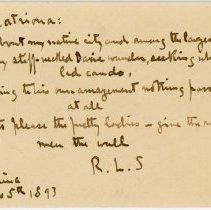 atriona:
about my native city and among the larger
stiff-necked Davie wander, seeking
led cando,
ing to his own amazement nothing
at all
please the pretty ladies - give the
men the wall
R. L. S
5th 1893